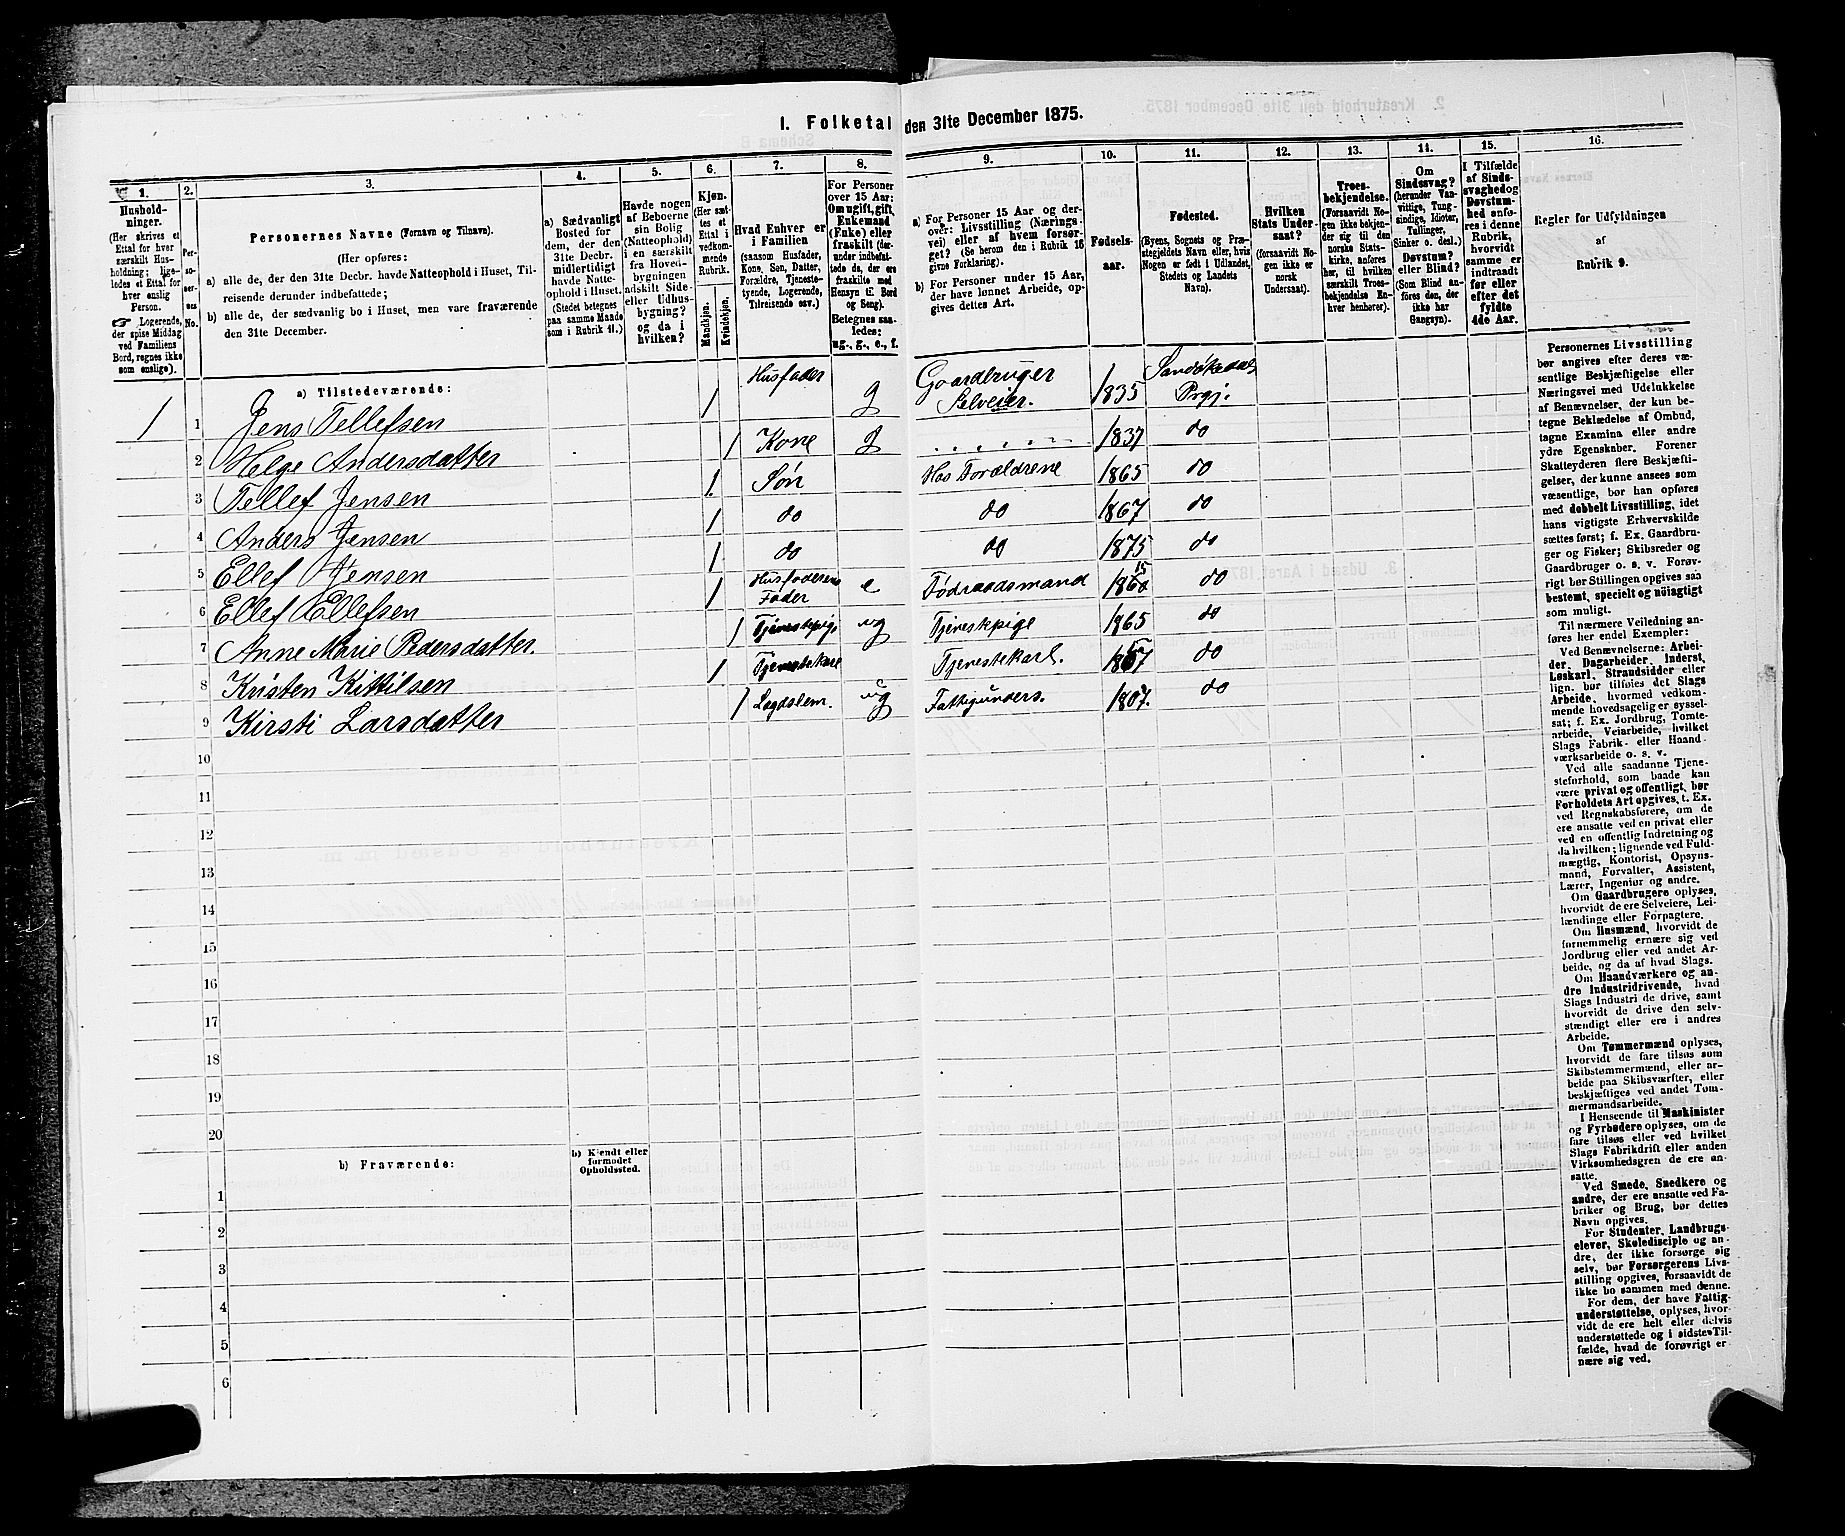 I. Folketal den 31te December 1875.
1.
Hushold-
ninger.
(Her skrives et
Ettal for hver
særskilt Hus-
holdning; lige-
ledes et Ettal for
hver enslig
Person.
☞ Logerende,
der spise Middag
ved Familiens
Bord, regnes ikke
som enslige).
2.
Per-
so-
ner-
nes
No.
3.
Personernes Navne (Fornavn og Tilnavn).
(Her opføres:
a) alle de, der den 31te Decbr. havde Natteophold i Huset, Til-
reisende derunder indbefattede;
b) alle de, der sædvanlig bo i Huset, men vare fraværende
den 31te December.
4.
a) Sædvanligt
Bosted for
dem, der den
31te Decbr.
midlertidigt
havde Natte-
ophold i Huset.
(Stedet betegnes
paa samme Maade
som i Rubrik 11.)
5.
Havde nogen
af Beboerne
sin Bolig
(Natteophold)
i en særskilt
fra Hoved-
bygningen
adskilt Side-
eller Udhus-
bygning?
og da i
hvilken?
6.
Kjøn.
(Her sæt-
tes et
Ettal i
vedkom-
mende
Rubrik.
Mandkjøn.
Kvindekjøn.
7.
Hvad Enhver er
i Familien
(saasom Husfader,
Kone, Søn, Datter,
Forældre, Tjeneste-
tyende, Logerende,
Tilreisende osv.)
8.
For Personer
over 15 Aar:
Om ugift, gift,
Enkemand
(Enke) eller
fraskilt (der-
under indbefat-
tede de, der ere
fraskilte med
Hensyn til Bord
og Seng).
Betegnes saa-
ledes:
ug., g., e., f.
9.
a) For Personer 15 Aar og der-
over: Livsstilling (Nærings-
vei) eller af hvem forsør-
get? (Se herom den i Rubrik 16
givne Forklaring).
b) For Personer under 15 Aar,
der have lønnet Arbeide, op-
gives dettes Art.
10.
Fødsels-
aar.
11.
Fødested.
(Byens, Sognets og Præ-
stegjeldets Navn eller, hvis
Nogen er født i Udlandet,
Stedets og Landets
Navn).
12.
Hvilken
Stats Under-
saat?
(forsaavidt No-
gen ikke er
norsk
Undersaat).
13.
Troes-
bekjendelse.
(Forsaavidt No-
gen ikke bekjen-
der sig til den
norske Stats-
kirke, anføres
her, til hvilken
særskilt Troes-
bekjendelse En-
hver henhører).
14.
Om
Sindssvag?
(herunder Van-
vittige, Tung-
sindige, Idioter,
Tullinger,
Sinker o. desl.)
Døvstum?
eller Blind?
(Som Blind an-
føres den, der
ikke har
Gangsyn).
15.
I Tilfælde
af Sinds-
svaghed og
Døvstum-
hed anfø-
res i denne
Rubrik,
hvorvidt
samme er
indtraadt
før eller
efter det
fyldte
4de Aar.
16.
Regler for Udfyldningen
af
Rubrik 9.
a) Tilstedeværende:
1 1 Jens Tellefsen 1 Husfader g Gaardbruger Selveier. 1835 Sandøkedals Prgj.
2 Helge Andersdatter 1 Kone g 1837 do
3 Tellef Jensen 1. Søn Hos Forældrene 1865 do
4 Anders Jensen 1 do do 1867 do
5 Ellef Jensen 1 do do 1875 do
6 Ellef Ellefsen 1 Husfaderens Fader e Fødraadsmand do
7 Anne Marie Pedersdatter. 1 Tjenestepige ug Tjenestepige 1865 do
8 Kristen Kittilsen 1 Tjenestekarl Tjenestekarl. do
9 Kirsti Larsdatter 1 Lægdslem. ug Fattigunders. 1807. do
10
11
12
13
14
15
16
17
18
19
20
b) Fraværende:
b) Kjendt eller
formodet
Opholdssted.
1
2
3
4
5
6
Personernes Livsstilling
bør angives efter deres væ-
sentlige Beskjæftigelse eller
Næringsvei med Udelukkelse
af Benævnelser, der kun be-
tegne Beklædelse af Ombud,
tagne Examina eller andre
ydre Egenskaber. Forener
Skatteyderen flere Beskjæfti-
gelser, der kunne ansees som
væsentlige, bør han opføres
med dobbelt Livsstilling, idet
hans vigtigste Erhvervskilde
sættes først; f. Ex. Gaardbru-
ger og Fisker; Skibsreder og
Gaardbruger o. s. v. Forøv-
rigt bør Stillingen opgives saa
bestemt, specielt og nöiagtigt
som muligt.
Til nærmere Veiledning an-
føres her endel Exempler:
Ved Benævnelserne: Arbei-
der, Dagarbeider, Inderst,
Løskarl, Strandsidder eller
lign. bør tilføies det Slags
Arbeide, hvormed vedkom-
mende hovedsagelig er syssel-
sat; f. Ex. Jordbrug, Tomte-
arbeide, Veiarbeide, hvilket
Slags Fabrik- eller Haand-
værksarbeide o. s. v.
Ved alle saadanne Tjene-
steforhold, som baade kan
være privat og offentligt, bør
Forholdets Art opgives, t. Ex.
ved Regnskabsførere, om de
ere ansatte ved en privat eller
ved en offentlig Indretning og
da hvilken; lignende ved Fuld-
mægtig, Kontorist, Opsyns-
mand, Forvalter, Assistent,
Lærer, Ingeniør og andre.
Om Gaardbrugere oplyses,
hvorvidt de ere Selveiere, Lei-
lændinge eller Forpagtere.
Om Husmænd, hvorvidt de
fornemmelig ernære sig ved
Jordbrug eller ved andet Ar-
beide, og da af hvad Slags.
Om Haandværkere og an-
dre Industridrivende, hvad
Slags Industri de drive, samt
hvorvidt de drive den selv-
stændigt eller ere i andres
Arbeide.
Om Tømmermænd oplyses,
hvorvidt de fare tilsøs som
Skibstømmermænd, eller ar-
beide paa Skibsværfter, eller
beskjæftiges ved andet Tøm-
mermandsarbeide.
I Henseende til Maskinister
og Fyrbødere oplyses, om de
fare tilsøs eller ved hvilket
Slags Fabrikdrift eller anden
Virksomhedsgren de ere an-
satte.
Ved Smede, Snedkere og
andre, der ere ansatte ved Fa-
briker og Brug, bør dettes
Navn opgives.
For Studenter, Landbrugs-
elever, Skoledisciple og an-
dre, der ikke forsørge sig
selv, bør Forsørgerens Livs-
stilling opgives, forsaavidt de
ikke bo sammen med denne.
For dem, der have Fattig-
understøttelse, oplyses, hvor-
vidt de ere helt eller delvis
understøttede og i sidste Til-
fælde, hvad de forøvrigt er-
nære sig ved.